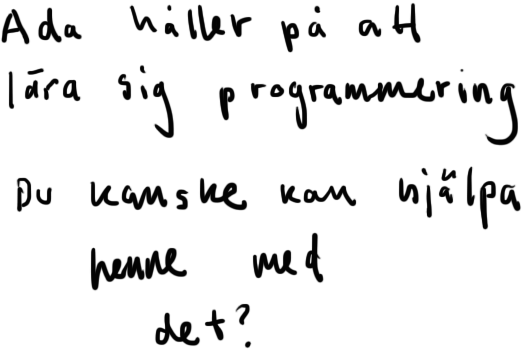 Ada håller på att
lära sig programmering
Du kanske kan hjälpa
henne med
det?